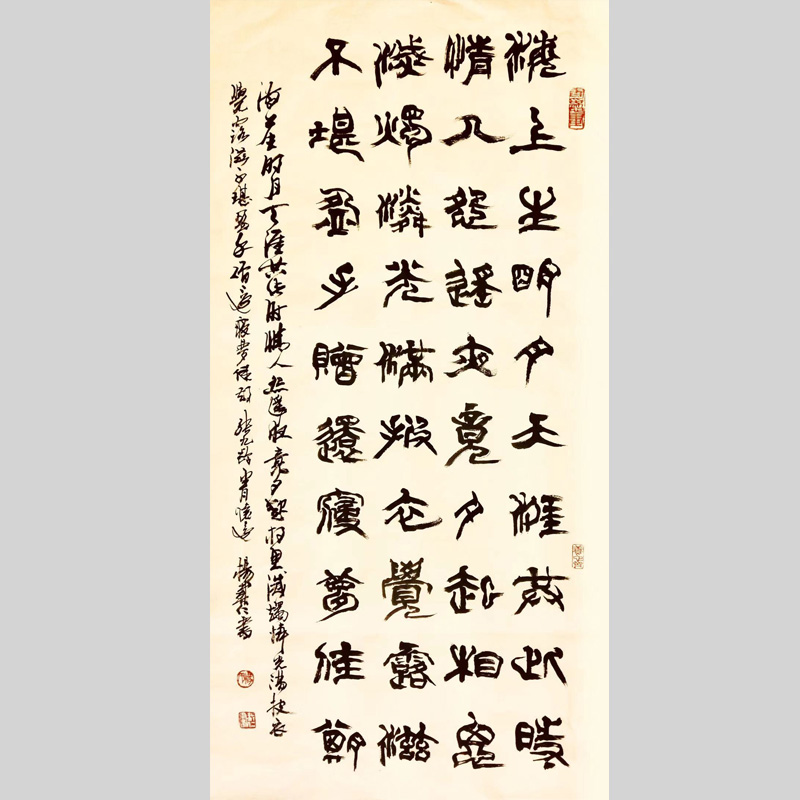 海上生明月天涯共此時
情人怨遙夜竟夕起相思
滅燭憐光滿披衣覺露滋
不堪盈手贈還寢夢佳期
海上生明月天涯共此時情人怨遙夜竟夕起相思滅燭憐光滿披衣
覺露滋不堪盈手贈還寢夢佳期 張九齡望月懷遠 楊書